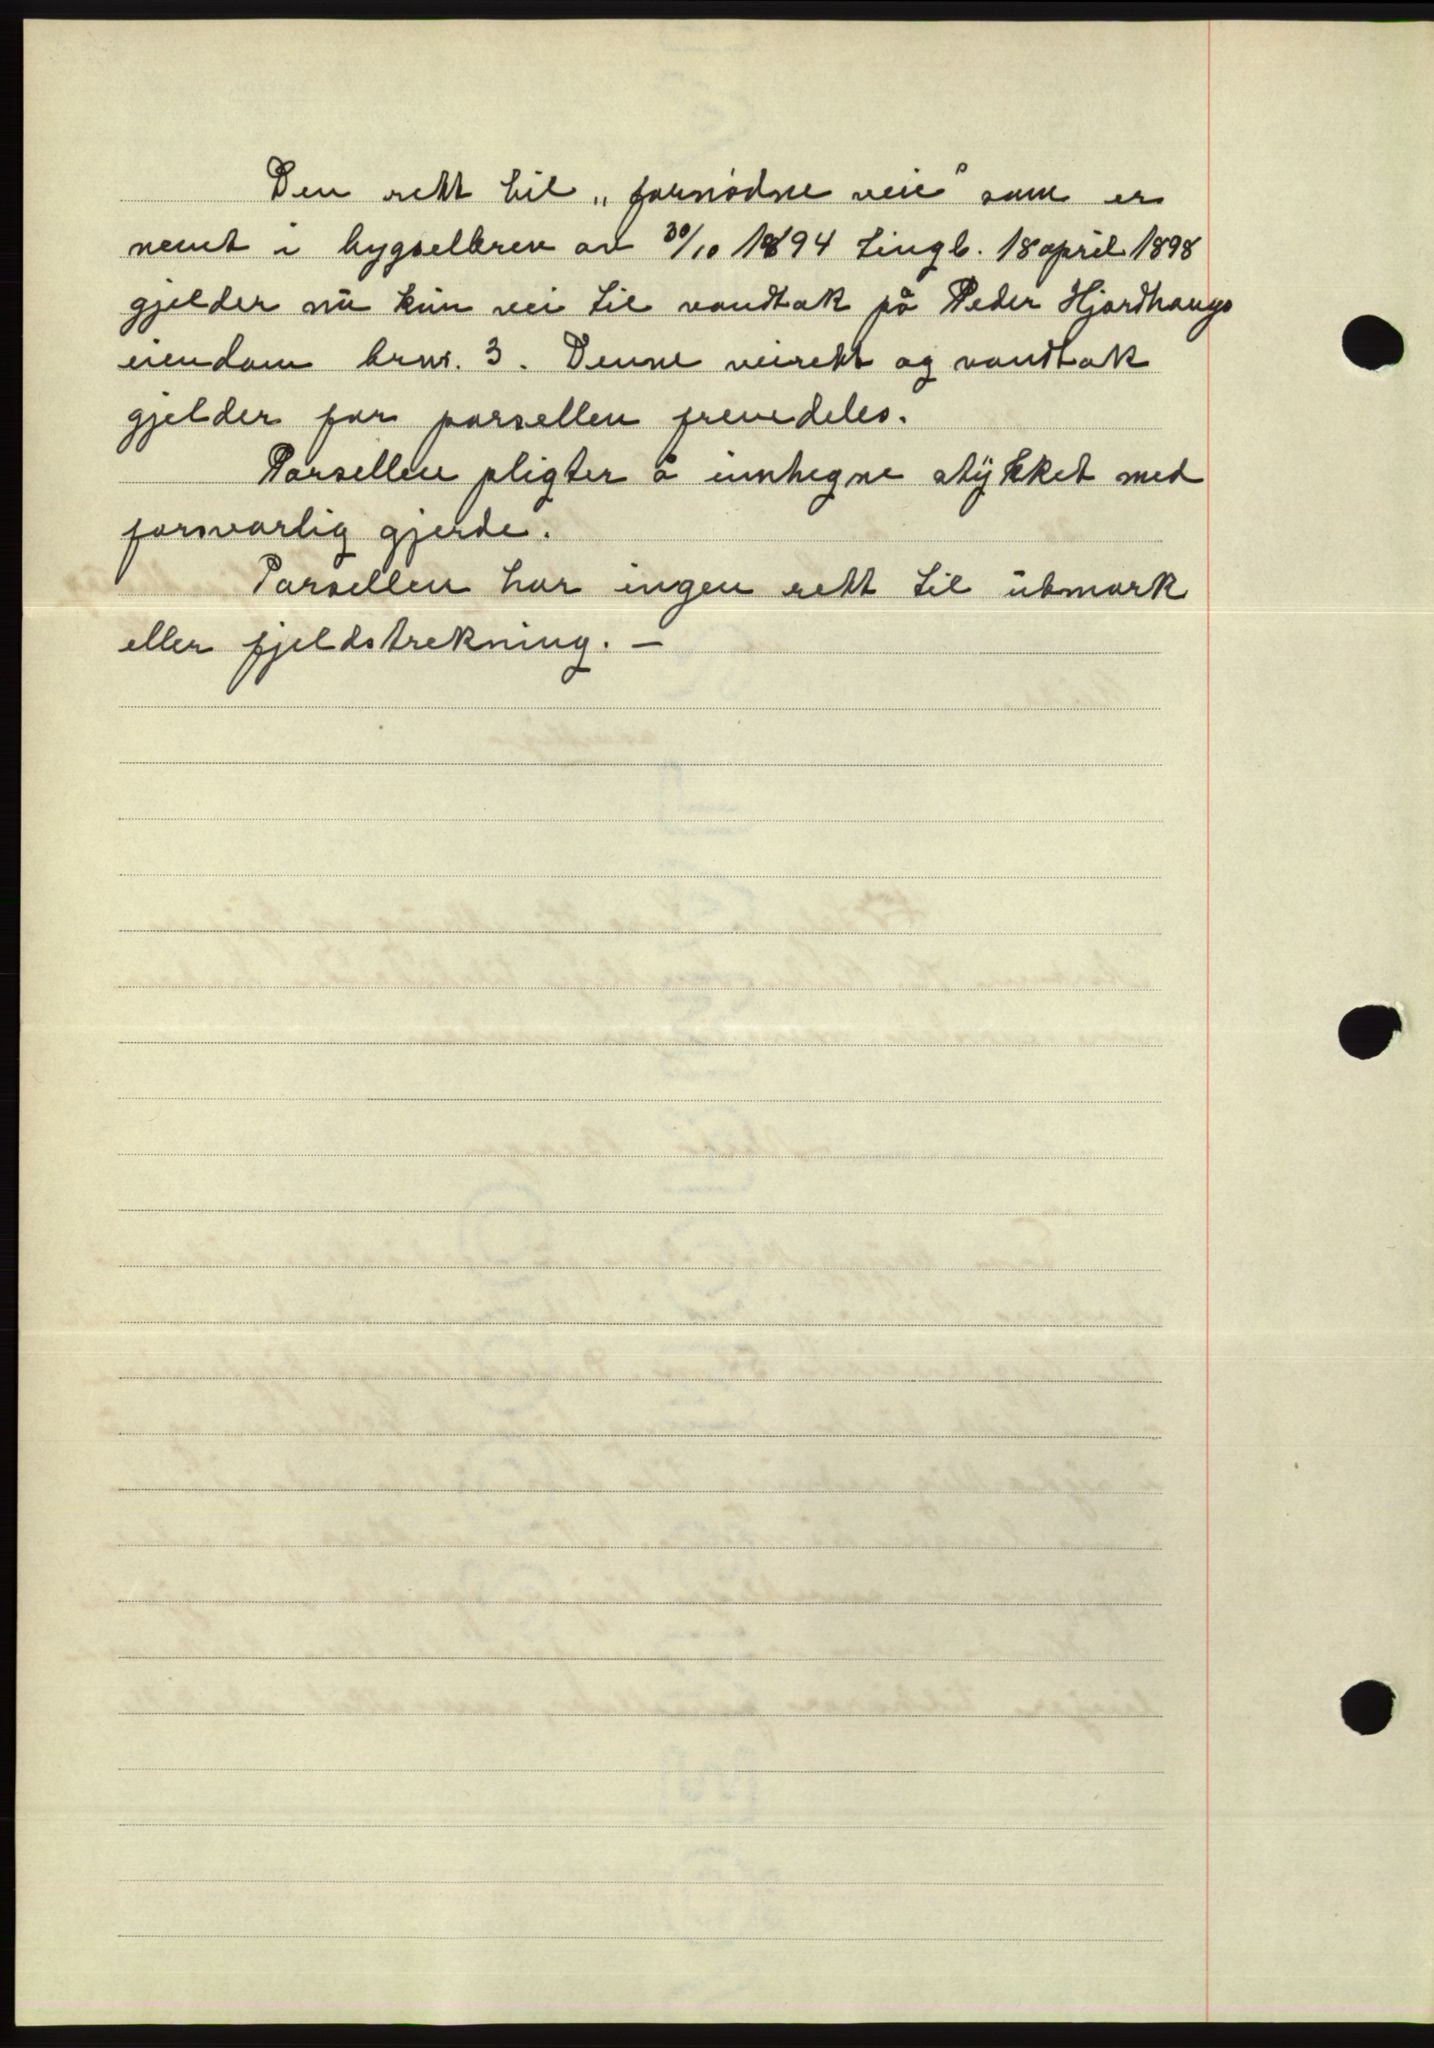 Den rett til „fornødne veie" som er
nemt i bygselbrev av 30/10 1894 tingl. 18 april 1898
gjelder nu kun vei til vandtak på Peder Hjardhaugs
eiendom brnr. 3. Denne veirett og vandtak
gjelder for parsellen fremdeles.
Parsellen pligter å innhegne stykket med
forsvarlig gjerde.
Parsellen har ingen rett til utmark
eller fjeldstrekning. —